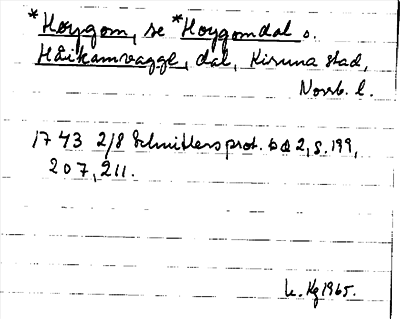 *Høygom, se *Høygomdal o.
Håikamvagge, dal, Kiruna stad,
Norrb. l.
1743 2/8 Schnitlers prot. bd 2, s. 199,
207, 211.
Kg 1965.